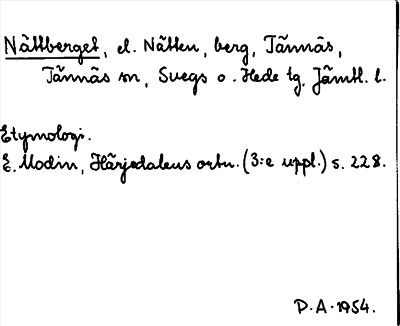 Nättberget, el. Nätten, berg, Tännäs,
Tännäs sn, Svegs o. Hede tg, Jämtl. l.
Etymologi.
E. Modin, Härjedalens ortn. (3:e uppl.) s. 228.
P.A. 1954.